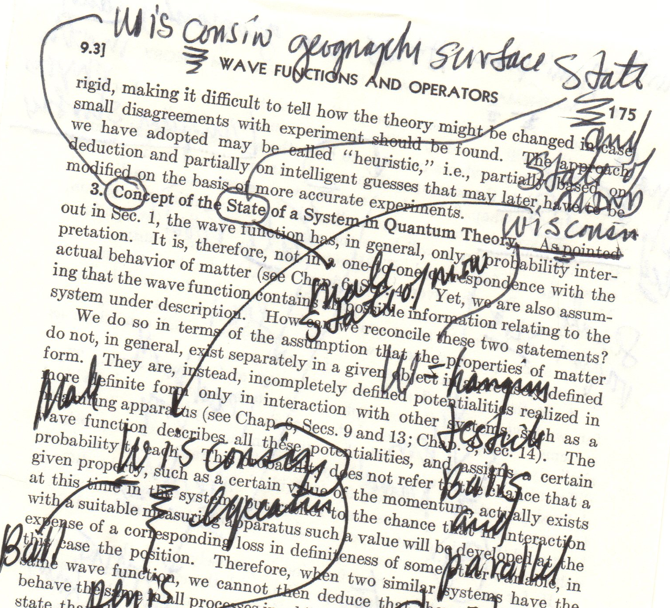 Wisconsin geography surface State
9.3]
WAVE FUNCTIONS AND OPERATORS
175
rigid, making it difficult to tell how the theory might be changed in case
small disagreements with experiment should be found. The approach
we have adopted may be called "heuristic," i.e., partially based on
deduction and partially on intelligent guesses that may later have to be
modified on the basis of more accurate experiments.
Wisconsin
3. Concept of the State of a System in Quantum Theory. As pointed
out in Sec. 1, the wave function has, in general, only a probability inter-
pretation. It is, therefore, not in a one-to-one correspondence with the
actual behavior of matter (see Chap. 6, Sec. 4). Yet, we are also assum-
ing that the wave function contains all possible information relating to the
system under description. How can we reconcile these two statements?
We do so in terms of the assumption that the properties of matter
do not, in general, exist separately in a given object in a precisely defined
form. They are, instead, incompletely defined potentialities realized in
more definite form only in interaction with other systems, such as a
measuring apparatus (see Chap. 6, Secs. 9 and 13; Chap. 8, Sec. 14). The
wave function describes all these potentialities, and assigns a certain
probability to each. This probability does not refer to the chance that a
given property, such as a certain value of the momentum, actually exists
at this time in the system, but rather to the chance that in interaction
with a suitable measuring apparatus such a value will be developed at the
expense of a corresponding loss in definiteness of some other variable, in
this case the position. Therefore, when two similar systems have the
same wave function, we cannot then deduce that
behave the same in all processes
state, that
W = hanging
Wisconsin
Balls
and
parallel
Ball